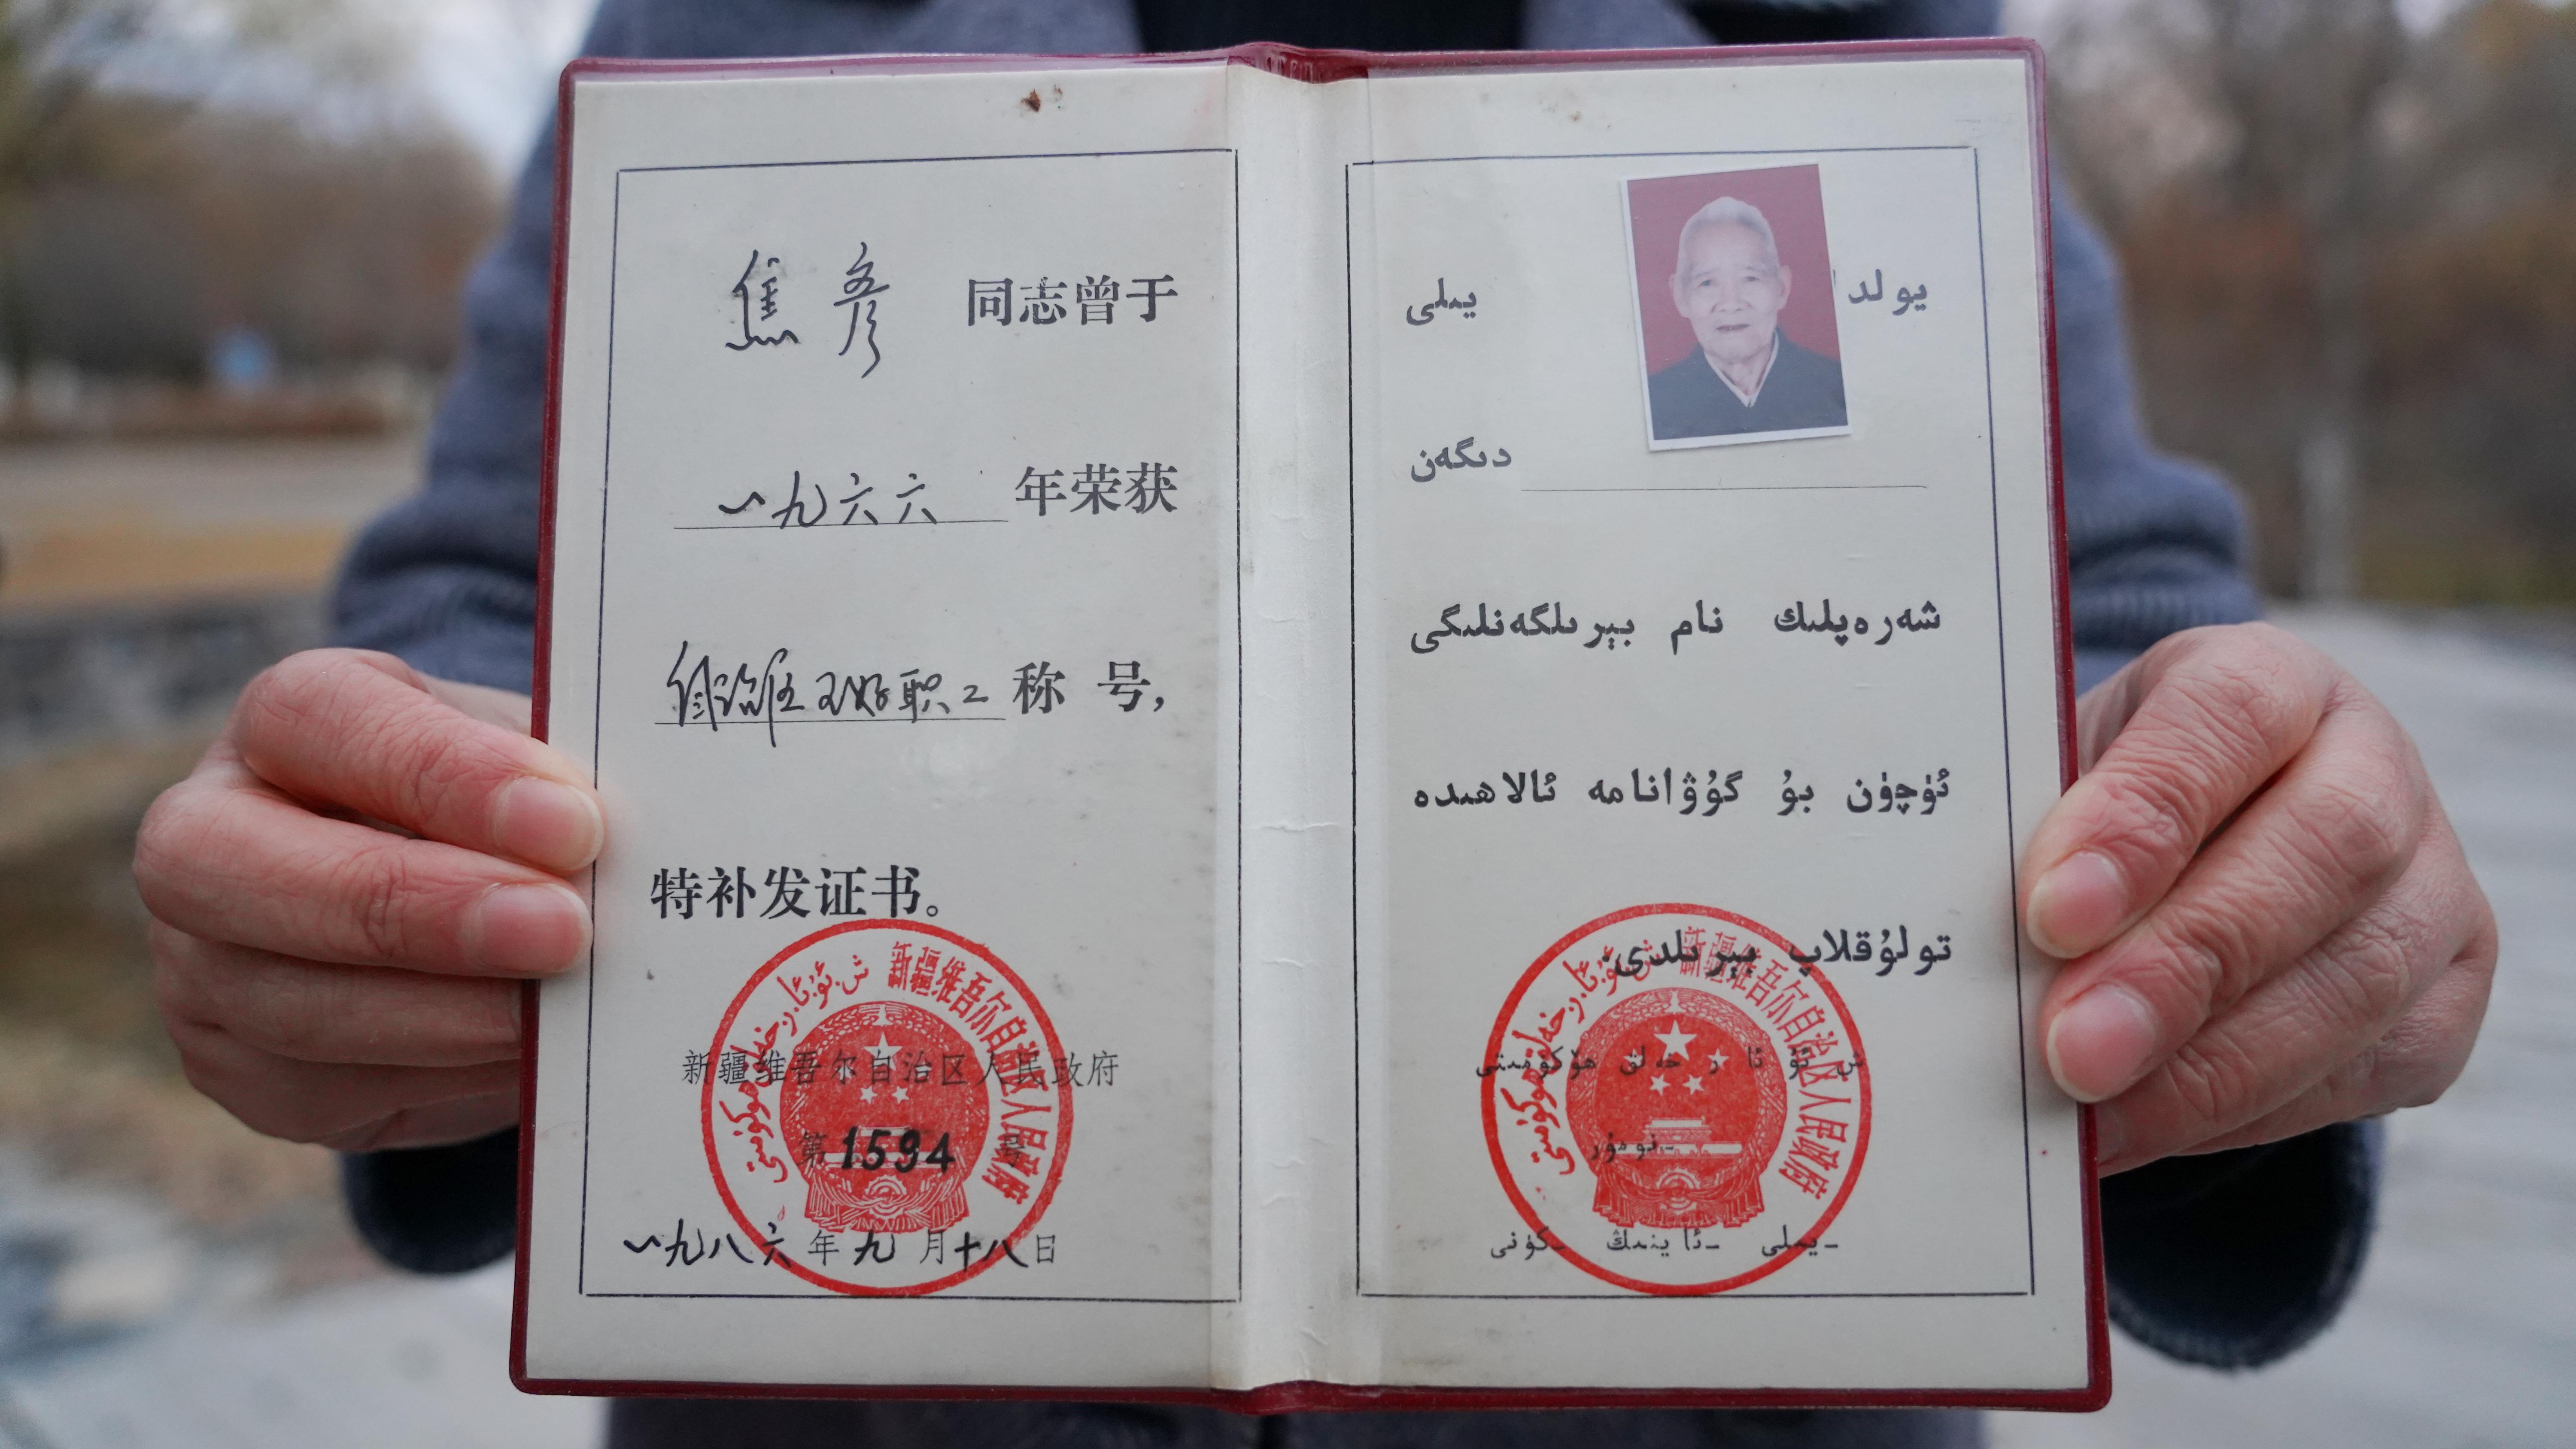 焦彦 同志曾于
一九六六 年荣获
自治区五好职工 称号，
特补发证书。
新疆维吾尔自治区人民政府
新疆维吾尔自治区人民政府
第 1594 号
一九八六年九月十八日
يولدا يىلى
دىگەن
شەرەپلىك نام بېرىلگەنلىگى
ئۈچۈن بۇ گۇۋانامە ئالاھىدە
تولۇقلاپ بېرىلدى.
新疆维吾尔自治区人民政府
ش ئۇ ئا ر خەلق ھۆكۈمىتى
ـ نومۇر
ـ يىلى ـ ئاينىڭ ـ كۈنى